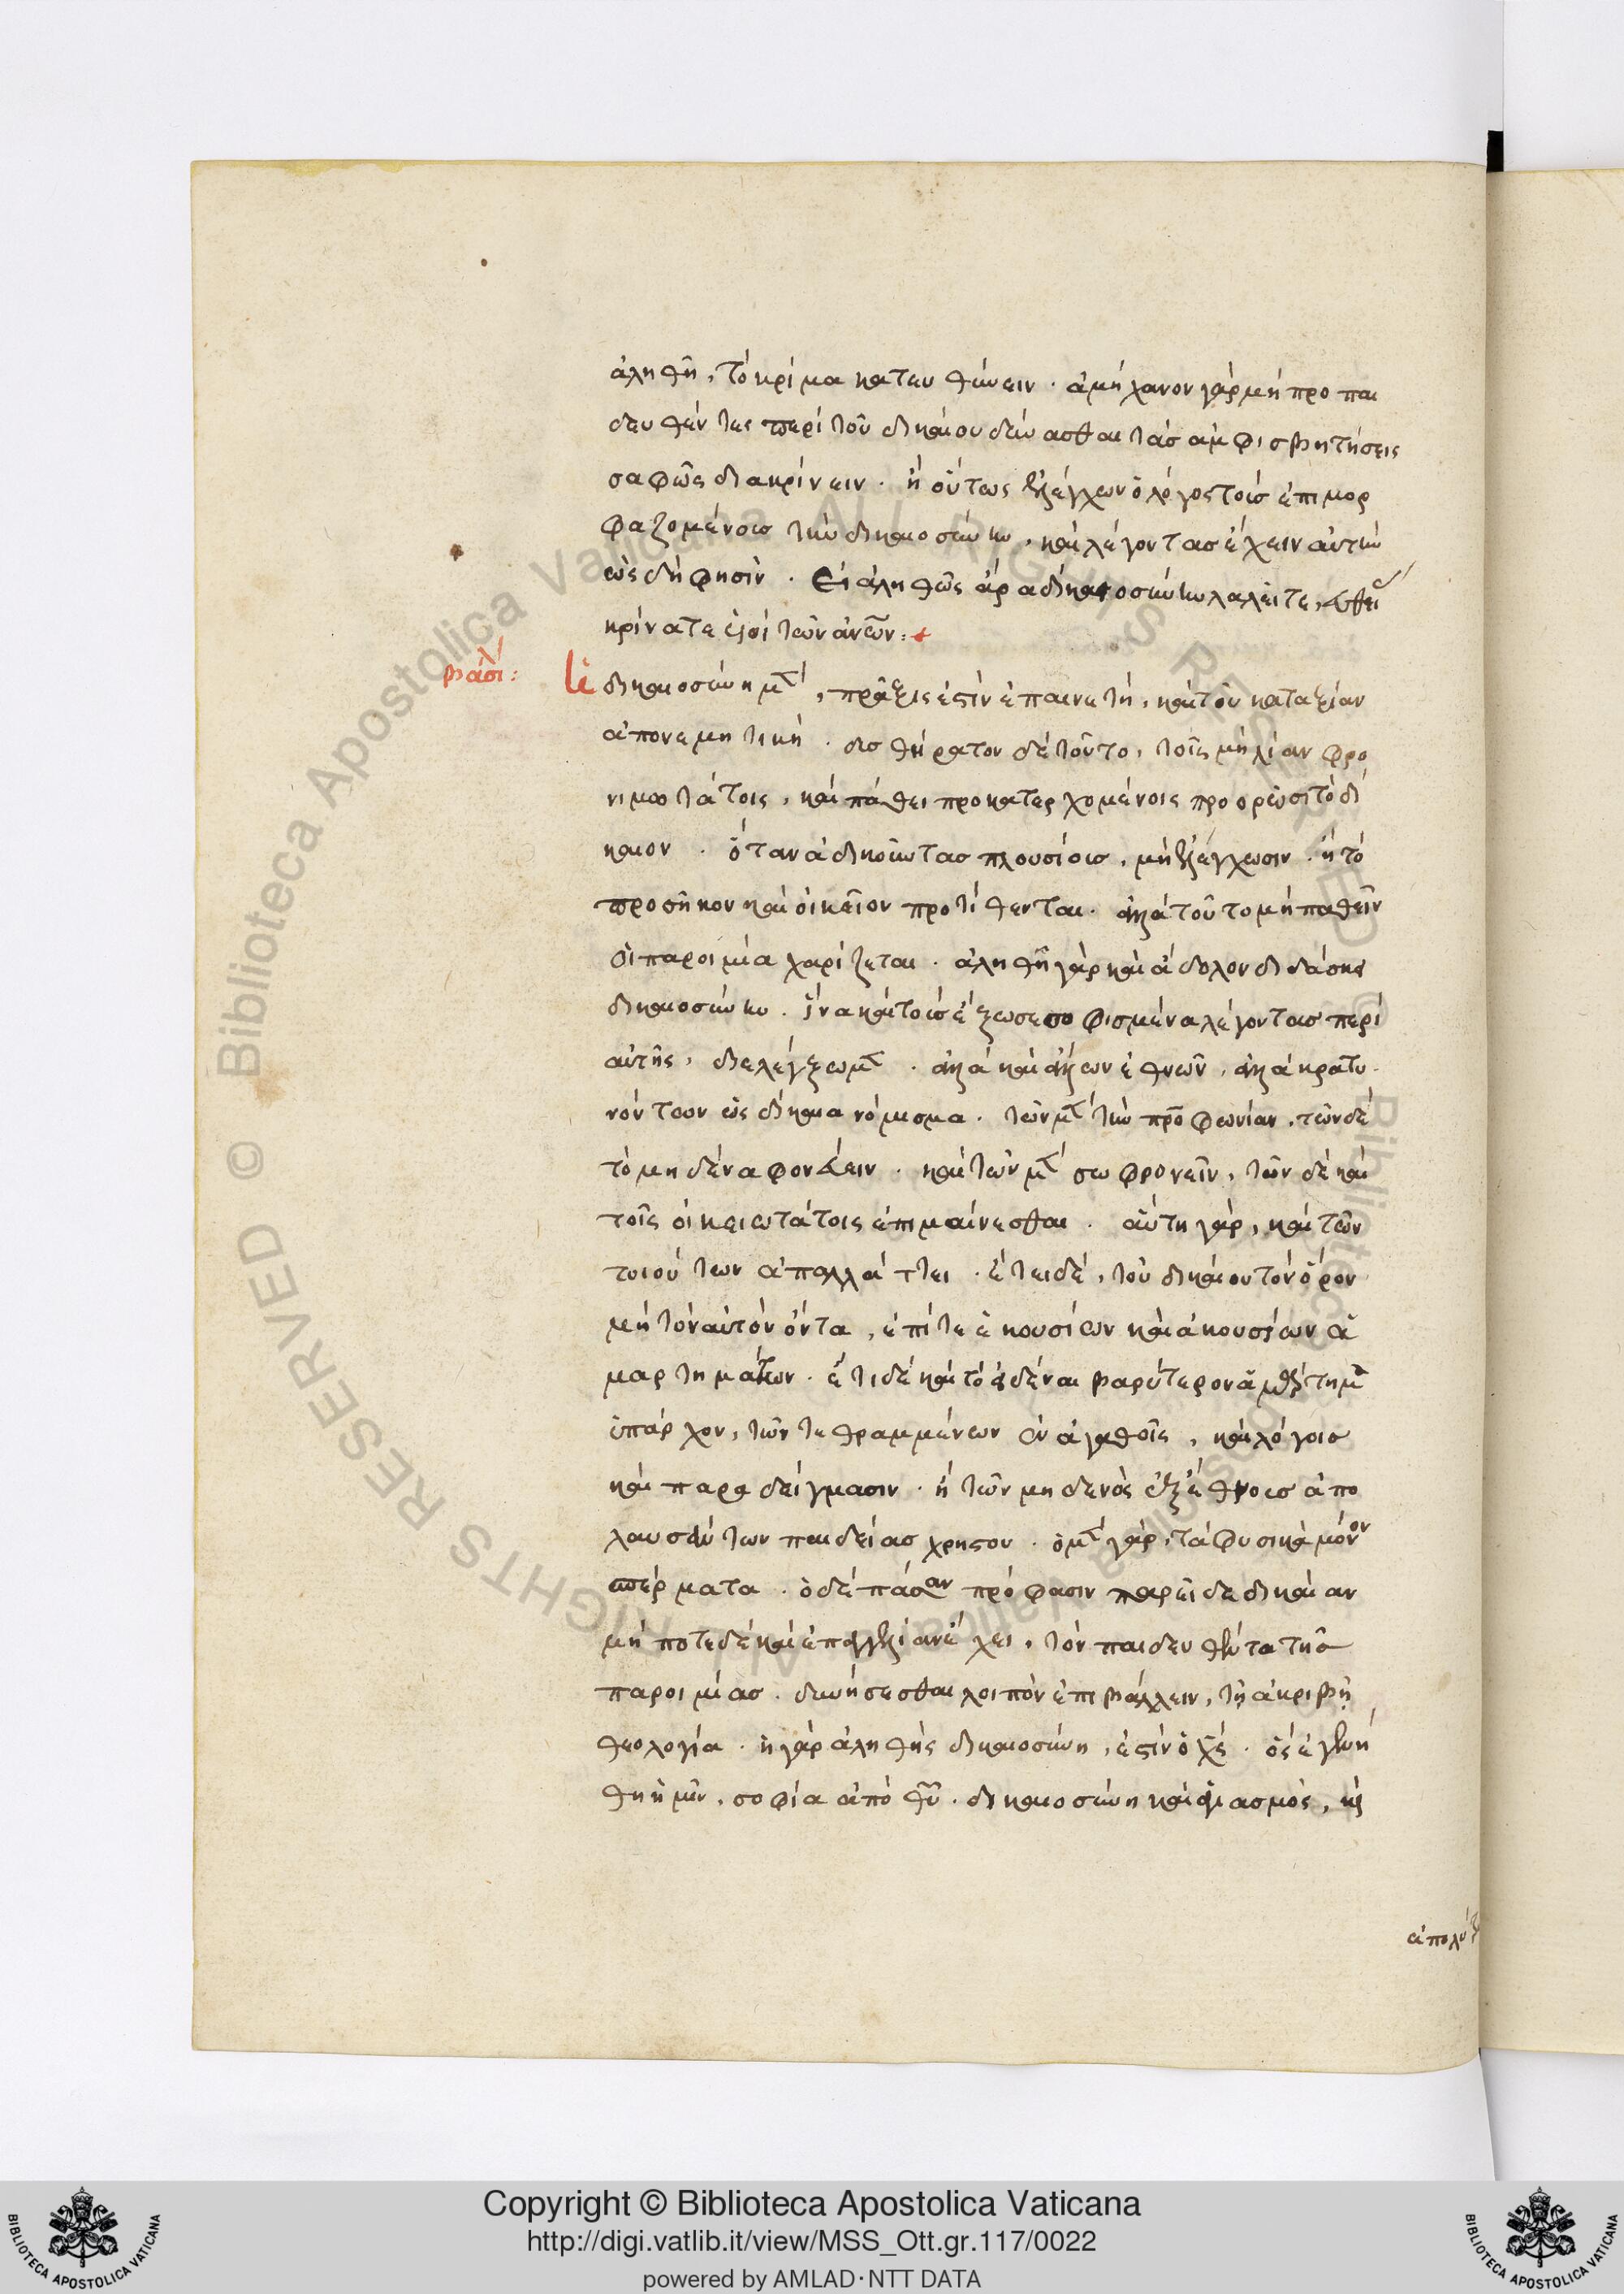 ἀληθῆ, τὸ κρίμα κατευθύνειν. ἀμήχανον γὰρ μὴ προπαι
δευθέντες περὶ τοῦ δικαίου δύνασθαι τὰσ ἀμφισβητήσεις
σαφῶς διακρίνειν. ἢ οὕτως ἐξελέγχων ὁ λόγος τοὺσ ἐπιμορ
φαζομένουσ τὴν δικαιοσύνην, καὶ λέγοντασ ἔχειν αὐτὴν
ὡς δὴ φησὶν. εἰ ἀληθῶς ἄρα δικαιοσύνην λαλεῖτε, εὐθεῖ
κρίνατε υἱοὶ τῶν ἀνων:+
βασιλ:
ιε δικαιοσύνη μὲν, πρᾶξις ἐστὶν ἐπαινετὴ, καὶ τοῦ κατ' ἀξίαν
ἀπονεμητικὴ. δυσθήρατον δὲ τοῦτο, τοῖς μὴ λίαν φρο
νιμωτάτοις, καὶ πάθει προκατερχομένοις προορῶσι τὸ δί
καιον. ὅταν ἀδικοῦντασ πλουσίουσ, μὴ ἐξελέγχωσιν. ἢ τὸ
προσῆκον καὶ οἰκεῖον προτίθενται. ἀλλὰ τοῦτο μὴ παθεῖν
ἡ παροιμία χαρίζεται. ἀληθῆ γὰρ καὶ ἄδολον διδάσκει
δικαιοσύνην. ἵνα καὶ τοὺσ ἔξω σεσοφισμένα λέγοντασ περὶ
αὐτῆς, διελέγξωμεν. ἀλλὰ καὶ ἄλλων ἐθνῶν, ἄλλα κρατυ
νόντων ὡς δίκαια νόμισμα. τῶν μὲν τὴν πρφωνίαν, τῶν δὲ
τὸ μηδένα φονεύειν. καὶ τῶν μὲν σωφρονεῖν, τῶν δὲ καὶ
τοῖς οἰκειωτάτοις ἐπιμαίνεσθαι. αὕτη γὰρ, καὶ τῶν
τοιούτων ἀπαλλάττει. ἔτει δὲ, τοῦ δικαίου τὸν ὅρον
μὴ τὸν αὐτὸν ὄντα, ἐπί τε ἑκουσίων καὶ ἀκουσίων ἁ
μαρτημάτων. ἔτι δὲ καὶ τὸ εἰδέναι βαρύτερον ἁμάρτημα
ὑπάρχον, τῶν τεθραμμένων ἐν ἀγαθοῖς, καὶ λόγοισ
καὶ παραδείγμασιν. ἢ τῶν μηδενὸς ἐξ ἔθνουσ ἀπο
λαυσάντων παιδείασ χρηστοῦ. ὁ μὲν γὰρ, τὰ φυσικὰ μόνον
σπέρματα. ὁ δὲ πάσαν πρόφασιν παρεῖδε δικαίαν
μή ποτε δὲ καὶ ἐπαγγελίαν ἔχει, τὸν παιδευθέντα τῆσ
παροιμίασ. δυνήσεσθαι λοιπὸν ἐπιβάλλειν, τῇ ἀκριβῇ
θεολογία. ἡ γὰρ ἀληθὴς δικαιοσύνη, ἐστὶν ὁ χς. ὃς ἐγενή
θη ἡμῖν, σοφία ἀπὸ θυ. δικαιοσύνη καὶ ἁγιασμὸς, κὶ
ἀπολύ
Copyright © Biblioteca Apostolica Vaticana
http://digi.vatlib.it/view/MSS_Ott.gr.117/0022
powered by AMLAD·NTT DATA